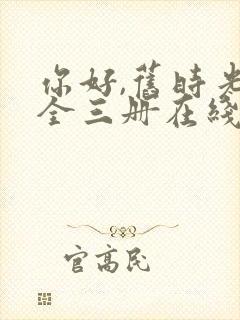 你好,舊時光
全三册在綫
官高民